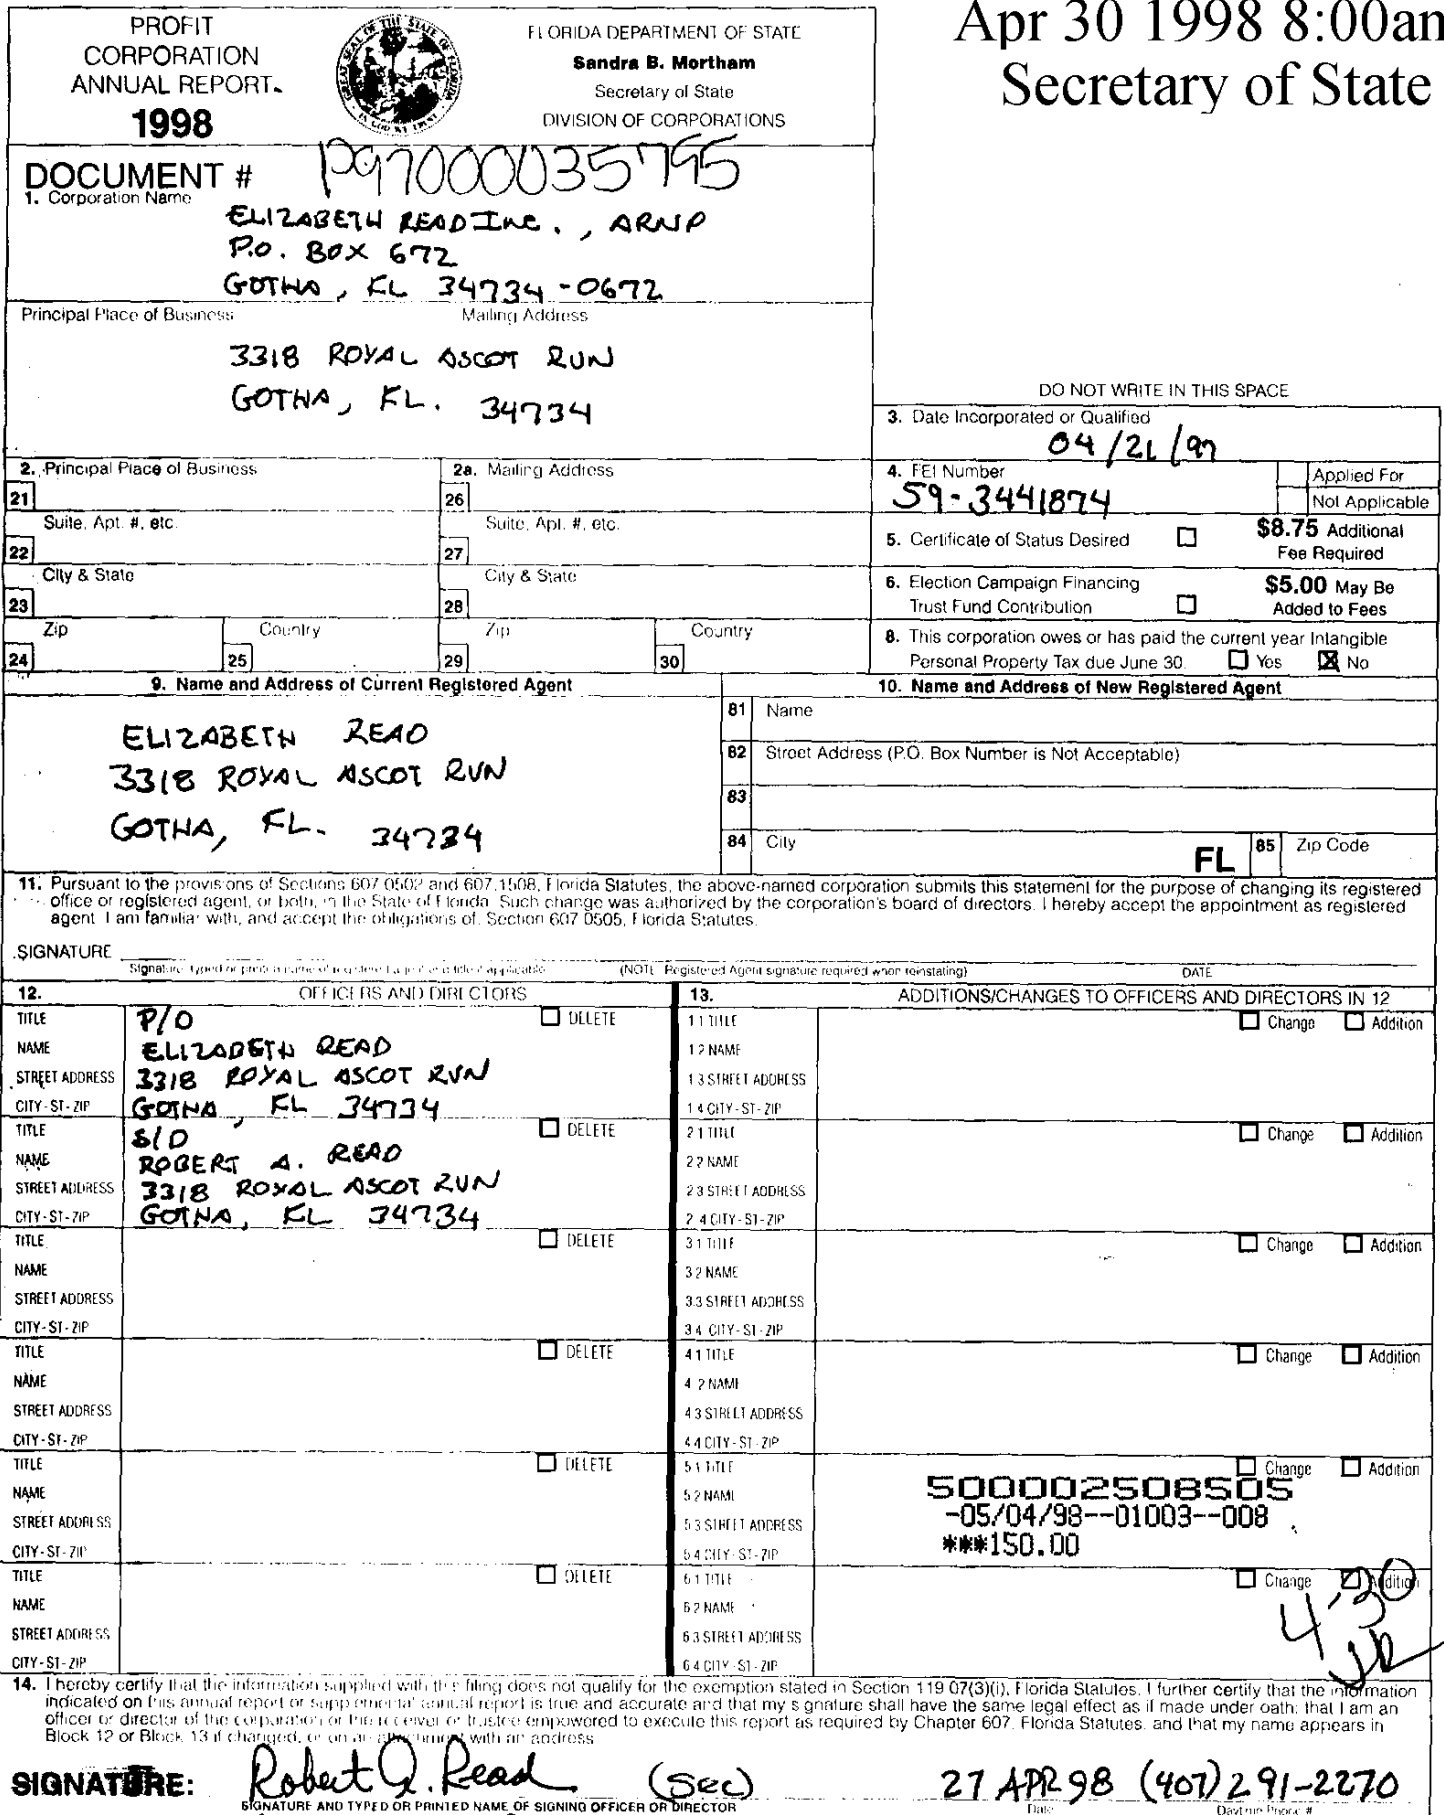 PROFIT
CORPORATION
ANNUAL REPORT
1998
FLORIDA DEPARTMENT OF STATE
Sandra B. Mortham
Secretary of State
DIVISION OF CORPORATIONS
Apr 30 1998 8:00am
Secretary of State
DOCUMENT # P97000035795
1. Corporation Name
ELIZABETH READ INC., ARNP
P.O. BOX 672
GOTHA, FL 34734-0672
Principal Place of Business Mailing Address
3318 ROYAL ASCOT RUN
GOTHA, FL. 34734
DO NOT WRITE IN THIS SPACE
3. Date Incorporated or Qualified
04/21/97
2. Principal Place of Business
21
2a. Mailing Address
26
4. FEI Number
59-3441874
Applied For
Not Applicable
Suite, Apt. #, etc.
22
Suite, Apt. #, etc.
27
5. Certificate of Status Desired
$8.75 Additional
Fee Required
City & State
23
City & State
28
6. Election Campaign Financing
Trust Fund Contribution
$5.00 May Be
Added to Fees
Zip
24
Country
25
Zip
29
Country
30
8. This corporation owes or has paid the current year Intangible
Personal Property Tax due June 30. Yes X No
9. Name and Address of Current Registered Agent
ELIZABETH READ
3318 ROYAL ASCOT RUN
GOTHA, FL. 34734
10. Name and Address of New Registered Agent
81 Name
82 Street Address (P.O. Box Number is Not Acceptable)
83
84 City
FL 85 Zip Code
11. Pursuant to the provisions of Sections 607.0502 and 607.1508, Florida Statutes, the above-named corporation submits this statement for the purpose of changing its registered
office or registered agent, or both, in the State of Florida. Such change was authorized by the corporation's board of directors. I hereby accept the appointment as registered
agent. I am familiar with, and accept the obligations of, Section 607.0505, Florida Statutes.
SIGNATURE
Signature, typed or printed name of registered agent and title if applicable (NOTE: Registered Agent signature required when reinstating) DATE
12. OFFICERS AND DIRECTORS
TITLE P/D DELETE
NAME ELIZABETH READ
STREET ADDRESS 3318 ROYAL ASCOT RUN
CITY-ST-ZIP GOTHA, FL 34734
TITLE S/D DELETE
NAME ROBERT A. READ
STREET ADDRESS 3318 ROYAL ASCOT RUN
CITY-ST-ZIP GOTHA, FL 34734
TITLE DELETE
NAME
STREET ADDRESS
CITY-ST-ZIP
TITLE DELETE
NAME
STREET ADDRESS
CITY-ST-ZIP
TITLE DELETE
NAME
STREET ADDRESS
CITY-ST-ZIP
TITLE DELETE
NAME
STREET ADDRESS
CITY-ST-ZIP
13. ADDITIONS/CHANGES TO OFFICERS AND DIRECTORS IN 12
1.1 TITLE Change Addition
1.2 NAME
1.3 STREET ADDRESS
1.4 CITY-ST-ZIP
2.1 TITLE Change Addition
2.2 NAME
2.3 STREET ADDRESS
2.4 CITY-ST-ZIP
3.1 TITLE Change Addition
3.2 NAME
3.3 STREET ADDRESS
3.4 CITY-ST-ZIP
4.1 TITLE Change Addition
4.2 NAME
4.3 STREET ADDRESS
4.4 CITY-ST-ZIP
5.1 TITLE Change Addition
5.2 NAME
5.3 STREET ADDRESS
5.4 CITY-ST-ZIP
500002508505
-05/04/98--01003--008
***150.00
6.1 TITLE Change Addition
6.2 NAME
6.3 STREET ADDRESS
6.4 CITY-ST-ZIP
4.30
14. I hereby certify that the information supplied with this filing does not qualify for the exemption stated in Section 119.07(3)(i), Florida Statutes. I further certify that the information
indicated on this annual report or supplemental annual report is true and accurate and that my signature shall have the same legal effect as if made under oath; that I am an
officer or director of the corporation or the receiver or trustee empowered to execute this report as required by Chapter 607, Florida Statutes; and that my name appears in
Block 12 or Block 13 if changed, or on an attachment with an address
SIGNATURE: Robert A. Read (SEC) 27 APR 98 (407) 291-2270
SIGNATURE AND TYPED OR PRINTED NAME OF SIGNING OFFICER OR DIRECTOR Date Daytime Phone #